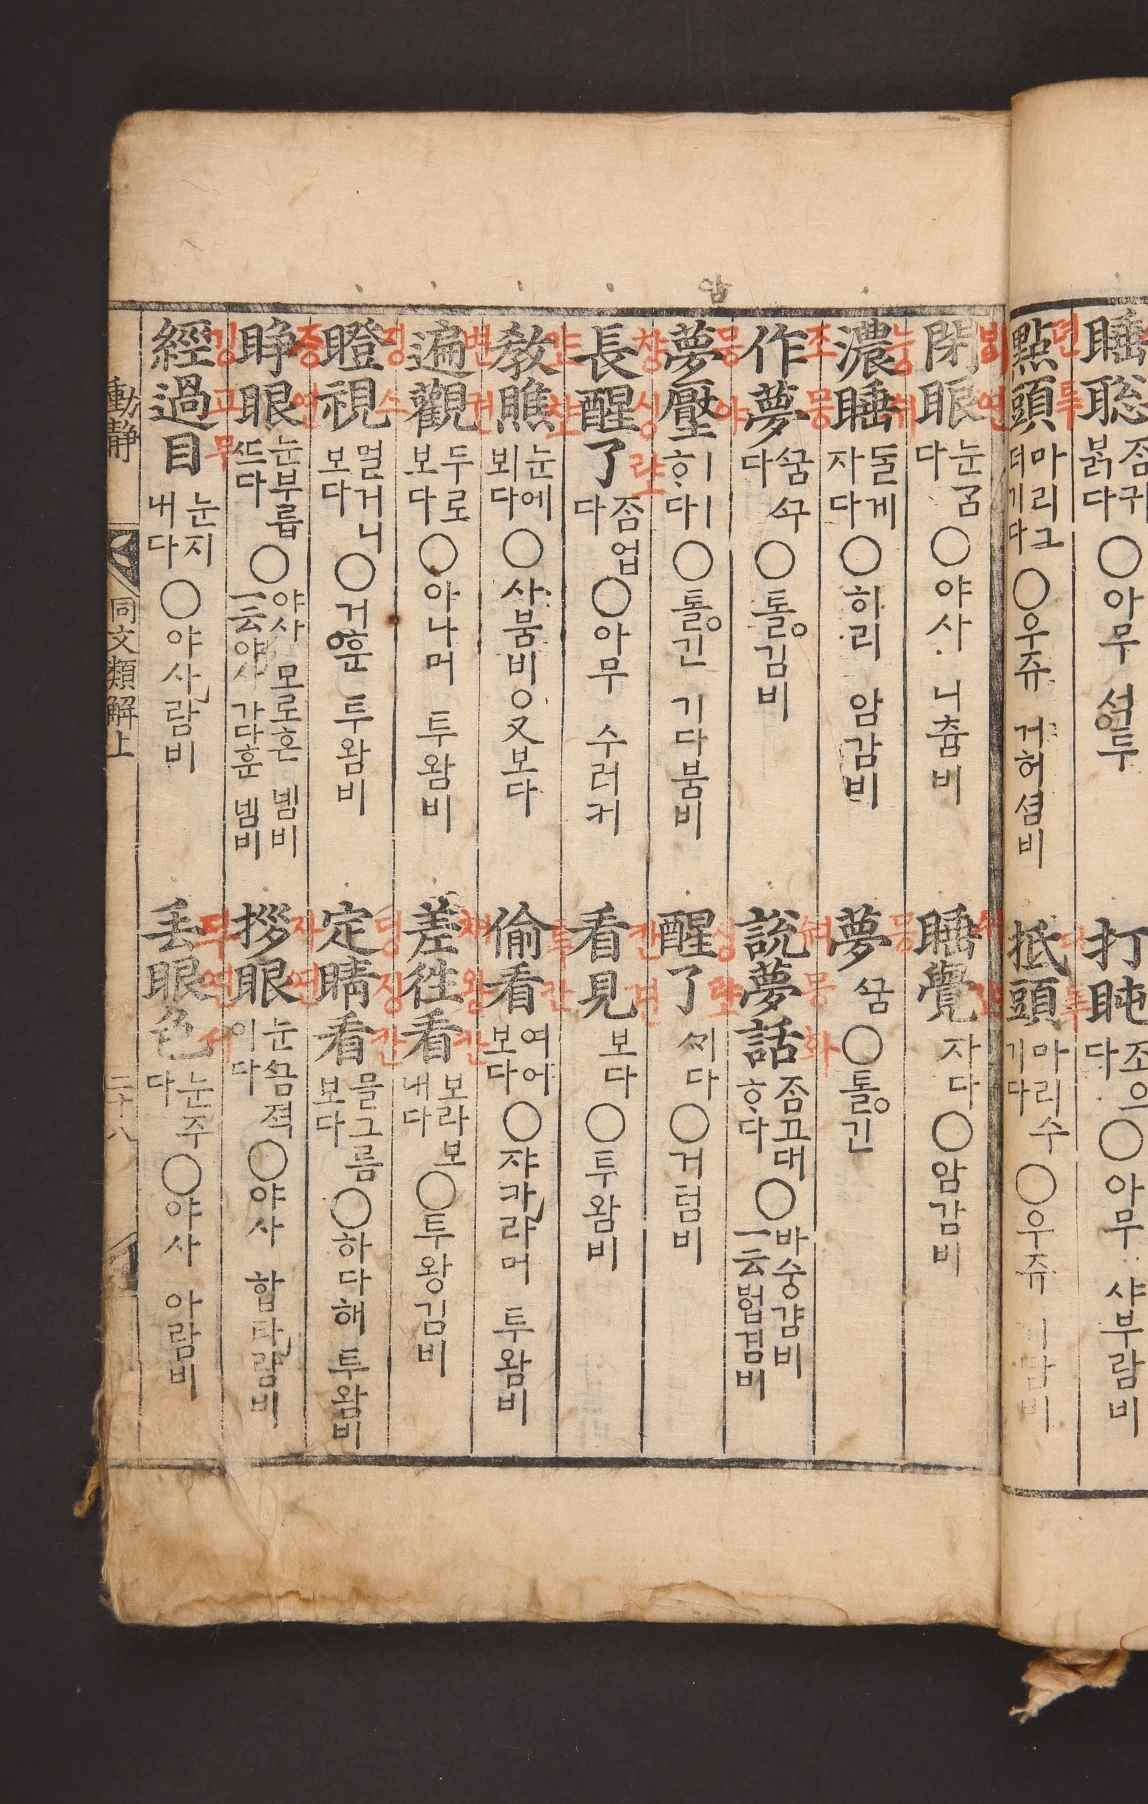 睡聦 좀귀붉다 ○아무 셔두
打盹 조으다 ○아무 샤부람비
點頭 마리그더기다 ○우쥬 거허셤비
抵頭 마리수기다 ○우쥬
閉眼 눈ᄀᆞᆷ다 ○야사 니춤비
睡覺 자다 ○암감비
濃睡 돌게자다 ○히리 암감비
夢 ᄭᅮᆷ ○톨긴
作夢 ᄭᅮᆷ ᄭᅮ다 ○톨김비
說夢話 좀고대ᄒᆞ다 ○바숭걈비 一云 법겸비
夢壓 기기ᄒᆞ다 ○톨긴 기다붐비
醒了 ᄭᆡ다 ○거텀비
長醒了 좀업다 ○아무 수러커
看見 보다 ○투왐비
教瞧 눈에뵈다 ○사붐비 ○又보다
偷看 여어보다 ○쟈카라머 투왐비
遍觀 두로보다 ○아나머 투왐비
差徃看 보라보내다 ○투왕김비
瞪視 멀거니보다 ○거훈 투왐비
定睛看 믈그름보다 ○하다해 투왐비
睜眼 눈부릅ᄯᅳ다 ○야사 모로혼 녬비 一云 야사 가다훈 녬비
拶眼 눈ᄭᅳᆷ젹이다 ○야사 합타람비
經過目 눈지내다 ○야사람비
丢眼色 눈주다 ○야사 아람비
動静
同文類解上
二十八